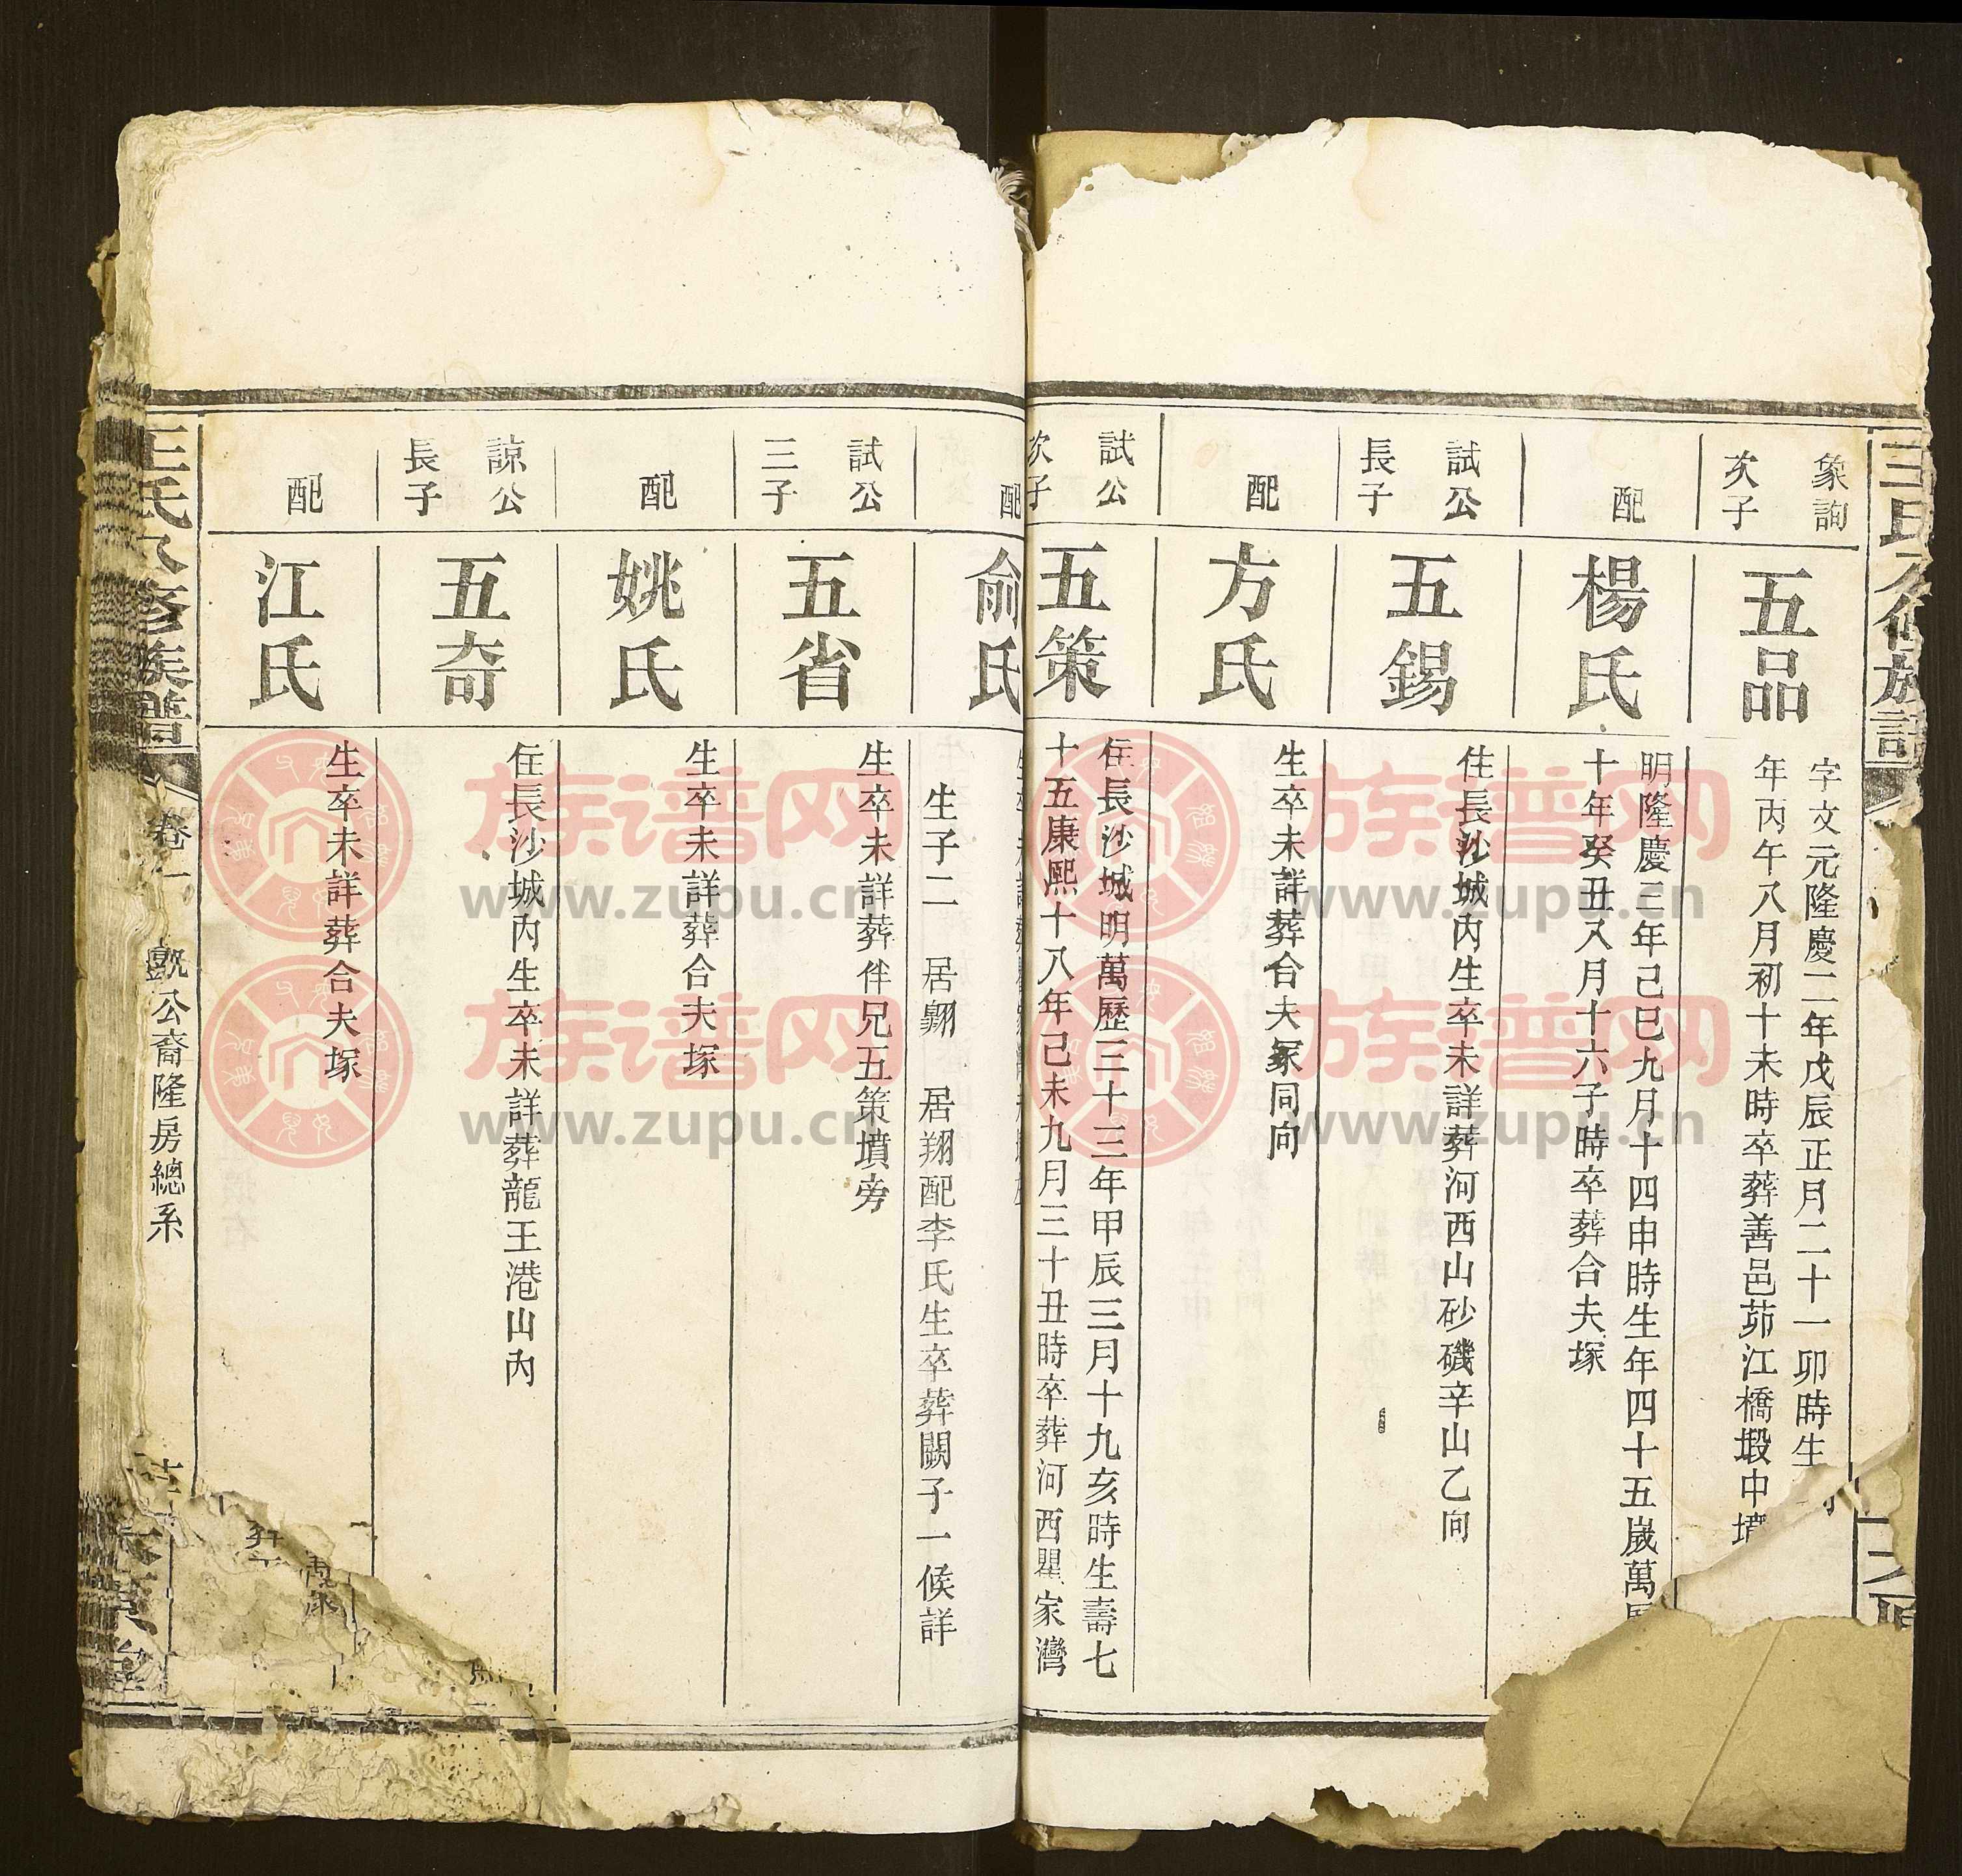 王氏
族譜
象詢
次子
五品
字文元隆慶二年戊辰正月二十一卯時生
年丙午八月初十未時卒葬善邑茆江橋塅中墳
配
楊氏
明隆慶三年己巳九月十四申時生年四十五嵗萬
十年癸丑又月十六子時卒葬合夫塚
試公
長子
五錫
住長沙城内生卒未詳葬河西山砂磯辛山乙向
配
方氏
生卒未詳葬合夫冢同向
試公
次子
五策
住長沙城明萬歷三十三年甲辰三月十九亥時生壽七
十五康熙十八年己未九月三十丑時卒葬河西瞿家灣
配
俞氏
生子二 居翾 居翔配李氏生卒葬闕子一候詳
試公
三子
五省
生卒未詳葬伴兄五策墳旁
配
姚氏
生卒未詳葬合夫塚
諒公
長子
五奇
住長沙城内生卒未詳葬龍王港山内
配
江氏
生卒未詳葬合夫塚
王氏
修族譜
卷一
公裔隆房總系
堂
族谱网
www.zupu.cn
族谱网
www.zupu.cn
族谱网
www.zupu.cn
族谱网
www.zupu.cn